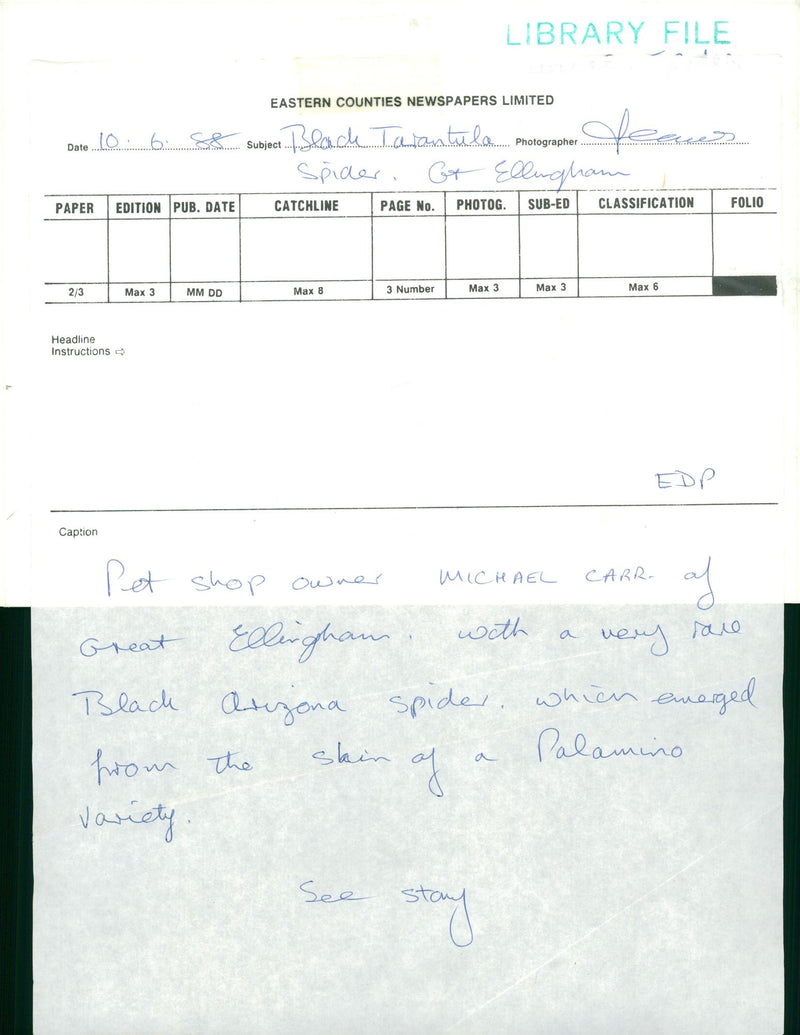 LIBRARY FILE
EASTERN COUNTIES NEWSPAPERS LIMITED
Date 10. 6. 88 Subject Black Tarantula Photographer
Spider. Gt Ellingham
PAPER EDITION PUB. DATE CATCHLINE PAGE No. PHOTOG. SUB-ED CLASSIFICATION FOLIO
2/3 Max 3 MM DD Max 8 3 Number Max 3 Max 3 Max 6
Headline
Instructions ⇨
EDP
Caption
Pet shop owner MICHAEL CARR. of
Great Ellingham. with a very rare
Black Arizona spider. which emerged
from the skin of a Palamino
variety.
See story